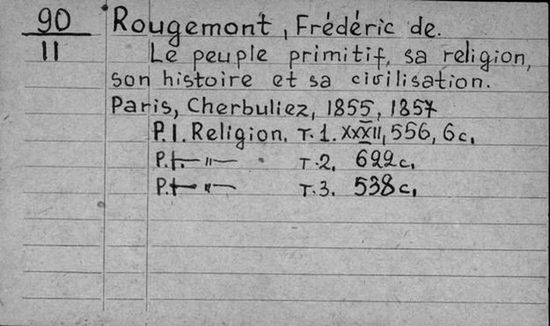 90
11
Rougemont, Frédéric de.
Le peuple primitif, sa religion,
son histoire et sa civilisation.
Paris, Cherbuliez, 1855, 1857
P.I. Religion. т.1. XXXII, 556, 6c.
P.I. —"— т.2. 622c.
P.I —"— т.3. 538c.